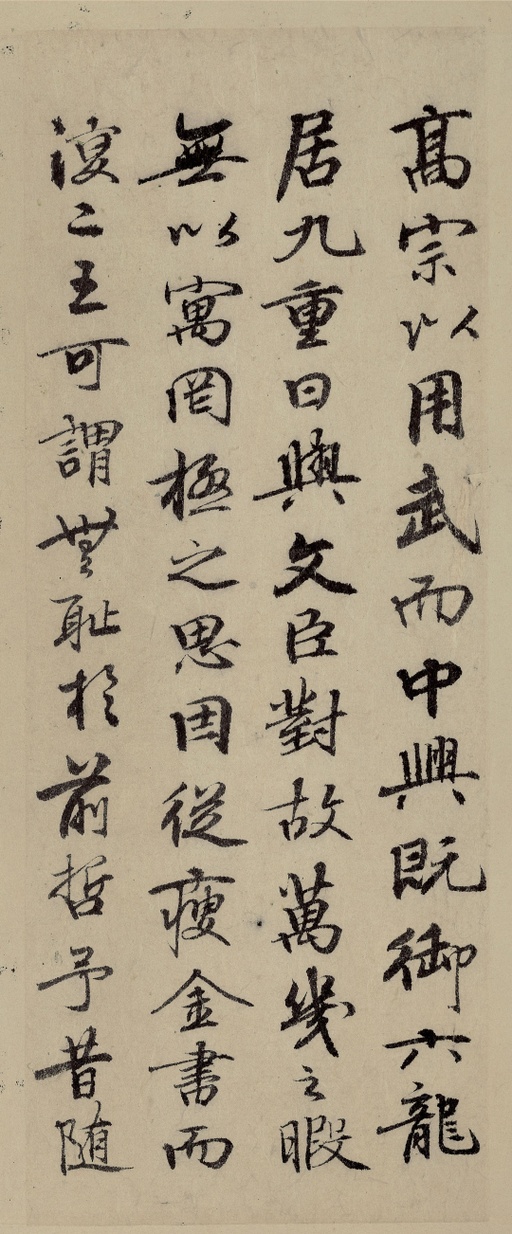 髙宗以用武而中興既御六龍
居九重日與文臣對故萬幾之暇
無以寓罔極之思因從瘦金書而
復二王可謂無耻於前哲予昔随